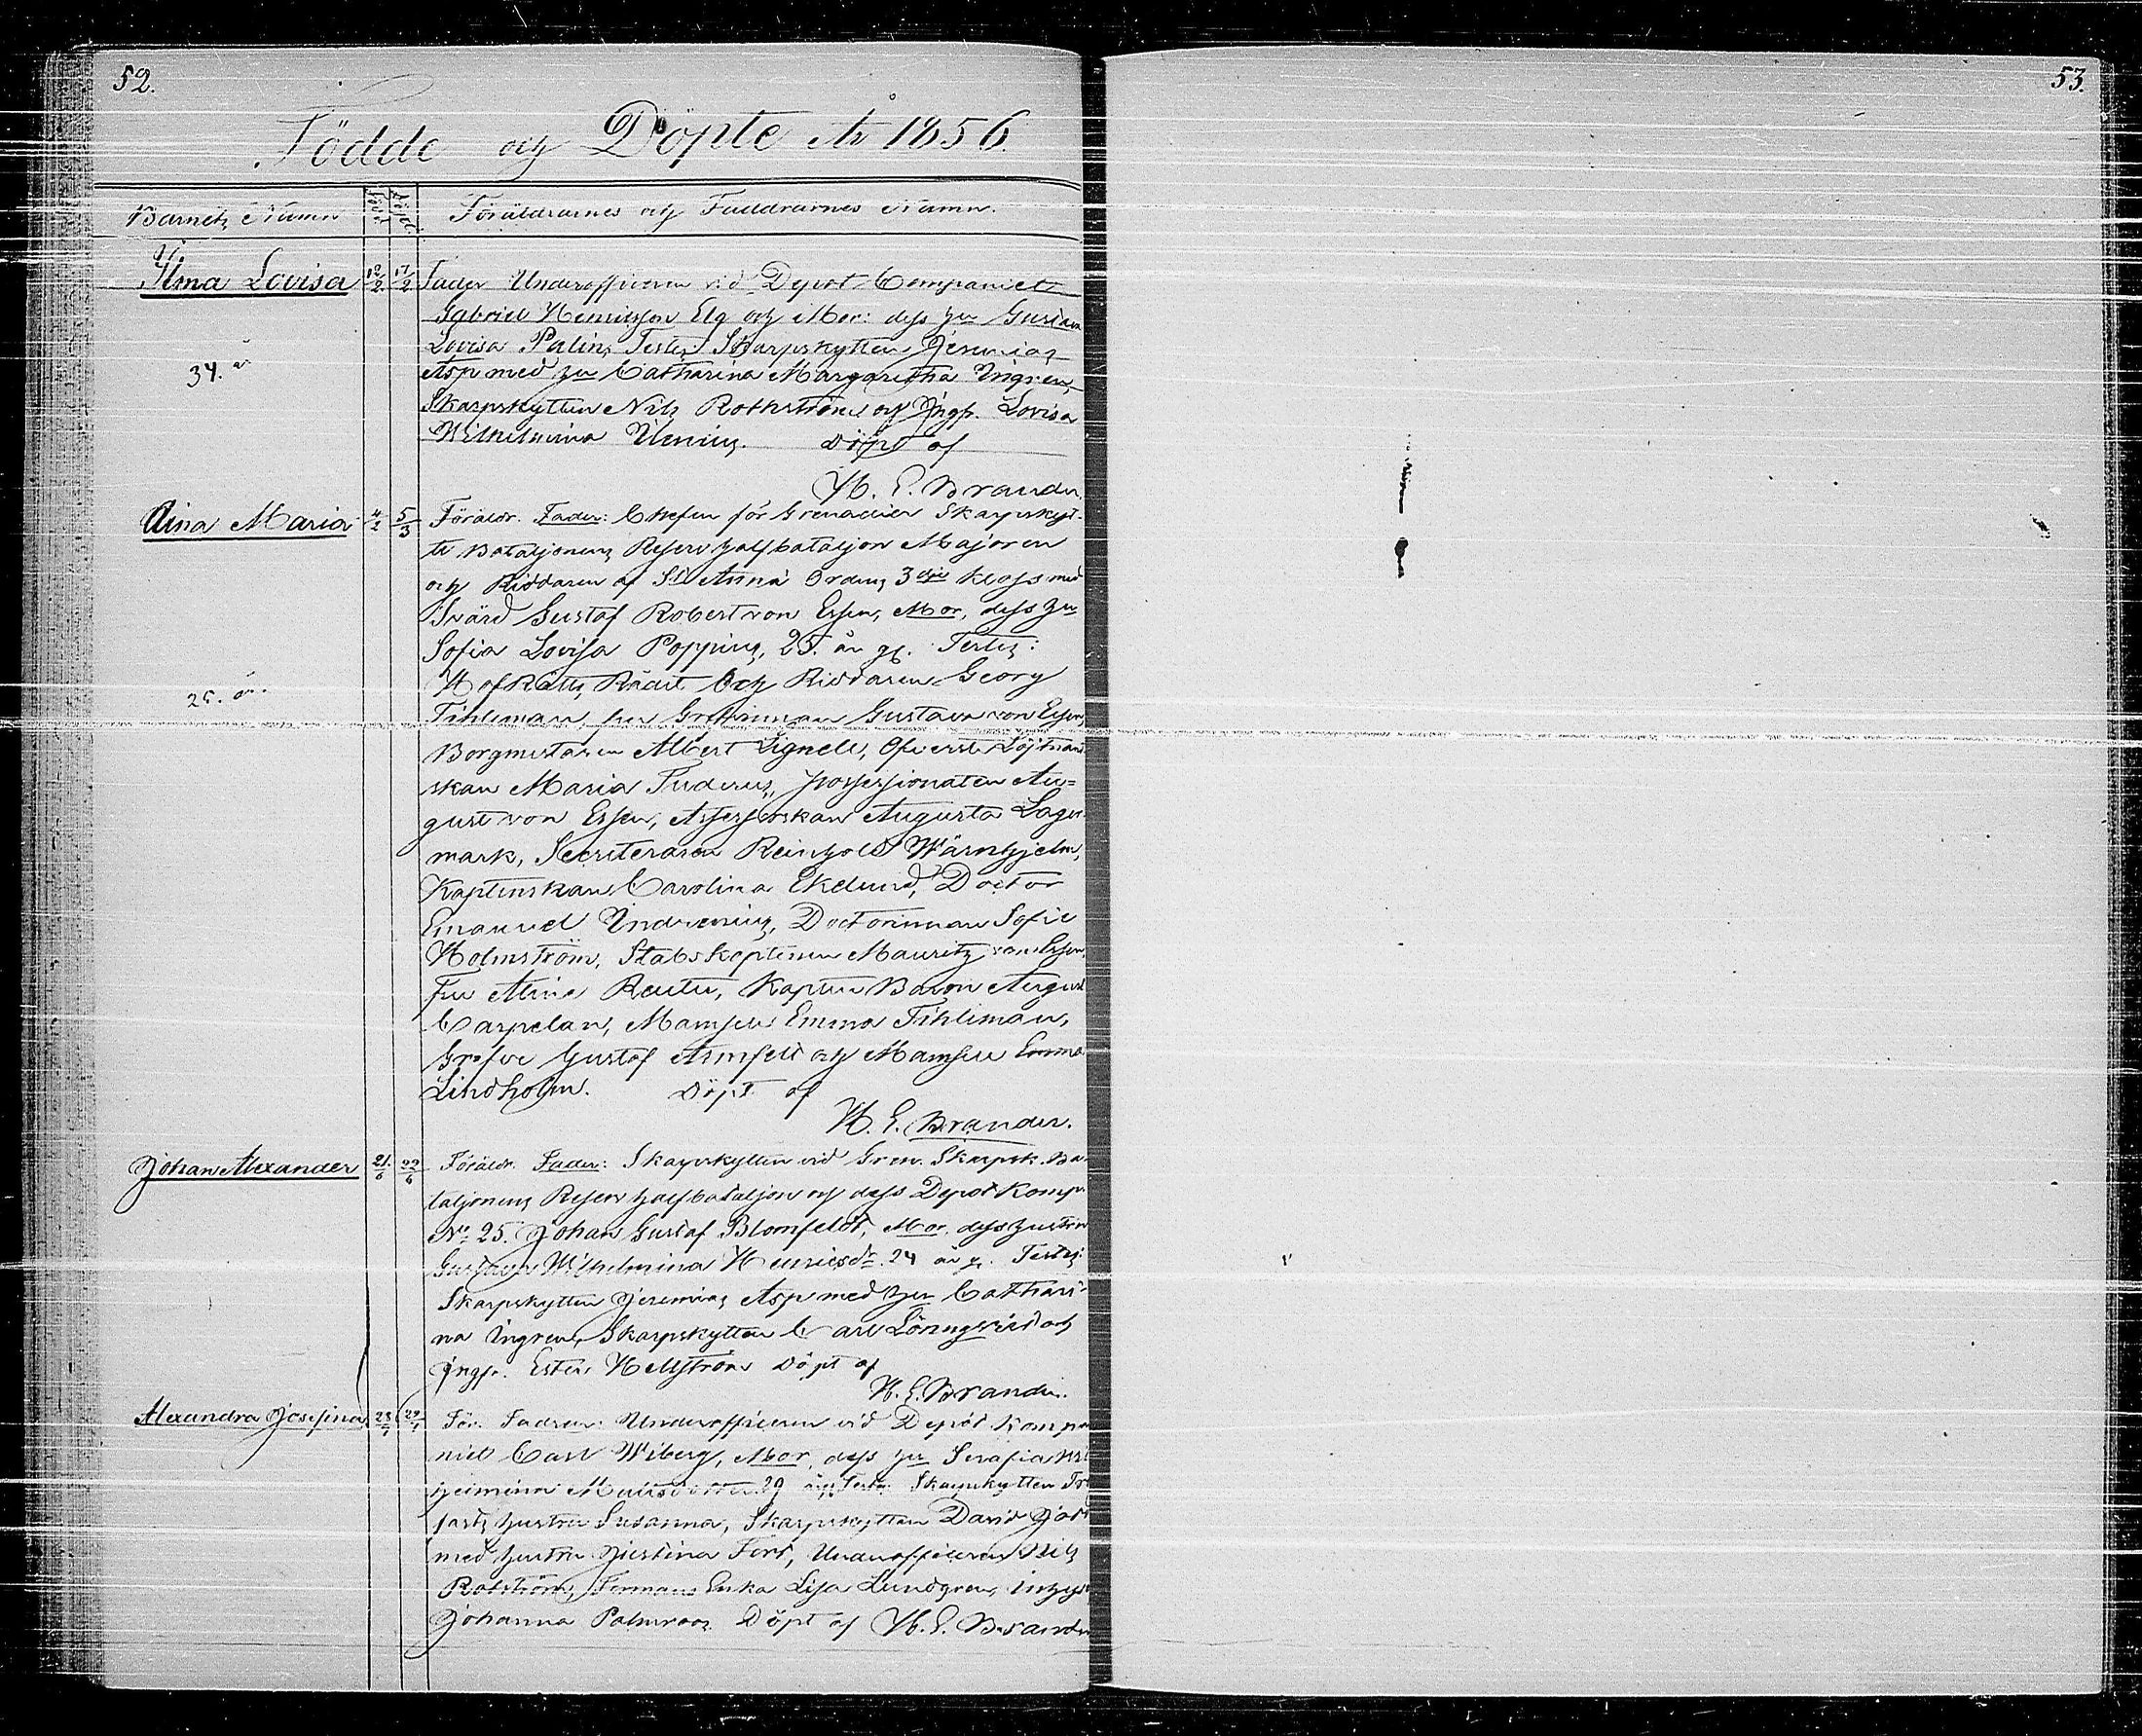 52.
53.
Födde och Döpte År 1856.
Barnets Namn
Född
Döpt
Föräldrarnes och Faddrarnes Namn.
Ilma Lovisa 12/2 17/2 Fader Underofficeren vid Depot Companiet
Gabriel Henricsson Elg och Mor: dess hu Gustava
Lovisa Palin, Testes Skarpskytten Jeremias
34. år
Asp med hu Catharina Margaretha Ingren,
Skarpskytten Nils Rothström och Jngfr. Lovisa
Wilhelmina Döpt af
H. E. Brander.
Aina Maria 4/2 5/3 Föräldr. Fader: Chefen för Grenadier Skarpskyt-
te Bataljonens Reserv halfbataljon Majoren
och Riddaren af St Anna Ordens 3dje klass med
Svärd Gustaf Robert von Essen, Mor, dess hu
Sofia Lovisa Poppius, 25. år gl. Testes:
HofRätts Rådet och Riddaren Georg
25. år.
Tihleman, fru Grefvinnan Gustava von Essen,
Borgmestaren Albert Lignell, Öfverste Löjtnant
skan Maria Tuderus, possessionaten Au=
gust von Essen, Assessorskan Augusta Lager
mark, Secreteraren Reinhold Wärnhjelm,
Kaptenskan Carolina Eklund, Doctor
Emanuel Indrenius, Doctorinnan Sofie
Holmström, Stabskaptenen Mauritz von Essen,
Fru Alina Reuter, Kapten Baron August
Carpelan, Mamsell Emma Tihleman,
Grefve Gustaf Armfelt och Mamsell Emma
Lindholm. Döpt af
H. E. Brander.
Johan Alexander 21/6 22/6 Föräldr. Fader: Skarpskytten vid Gren. Skarpsk. Ba-
taljonens Reserv halfbataljon och dess Depot Komp.
No 25. Johan Gustaf Blomfeldt, Mor, dess hustru
Gustava Wilhelmina Henricsdr. 24 år g. Testes:
Skarpskytten Jeremias Asp med hu Cathari-
na Ingren, Skarpskytten Carl och
Jngfr. Ester Hellström Döpt af
H. E. Brander.
Alexandra Josefina 28/7 29/7 För. Fadren: Underofficeren vid Depot Kompa
niet Carl Wiberg, Mor, dess hu Serafia Wil
helmina 29 år, Testes: Skarpskytten
hustru Susanna, Skarpskytten David
med hustru Justina Ford, Underofficeren Nils
Rotström, Erika Lisa Lundgren,
Johanna Palmroos. Döpt af H. E. Brander